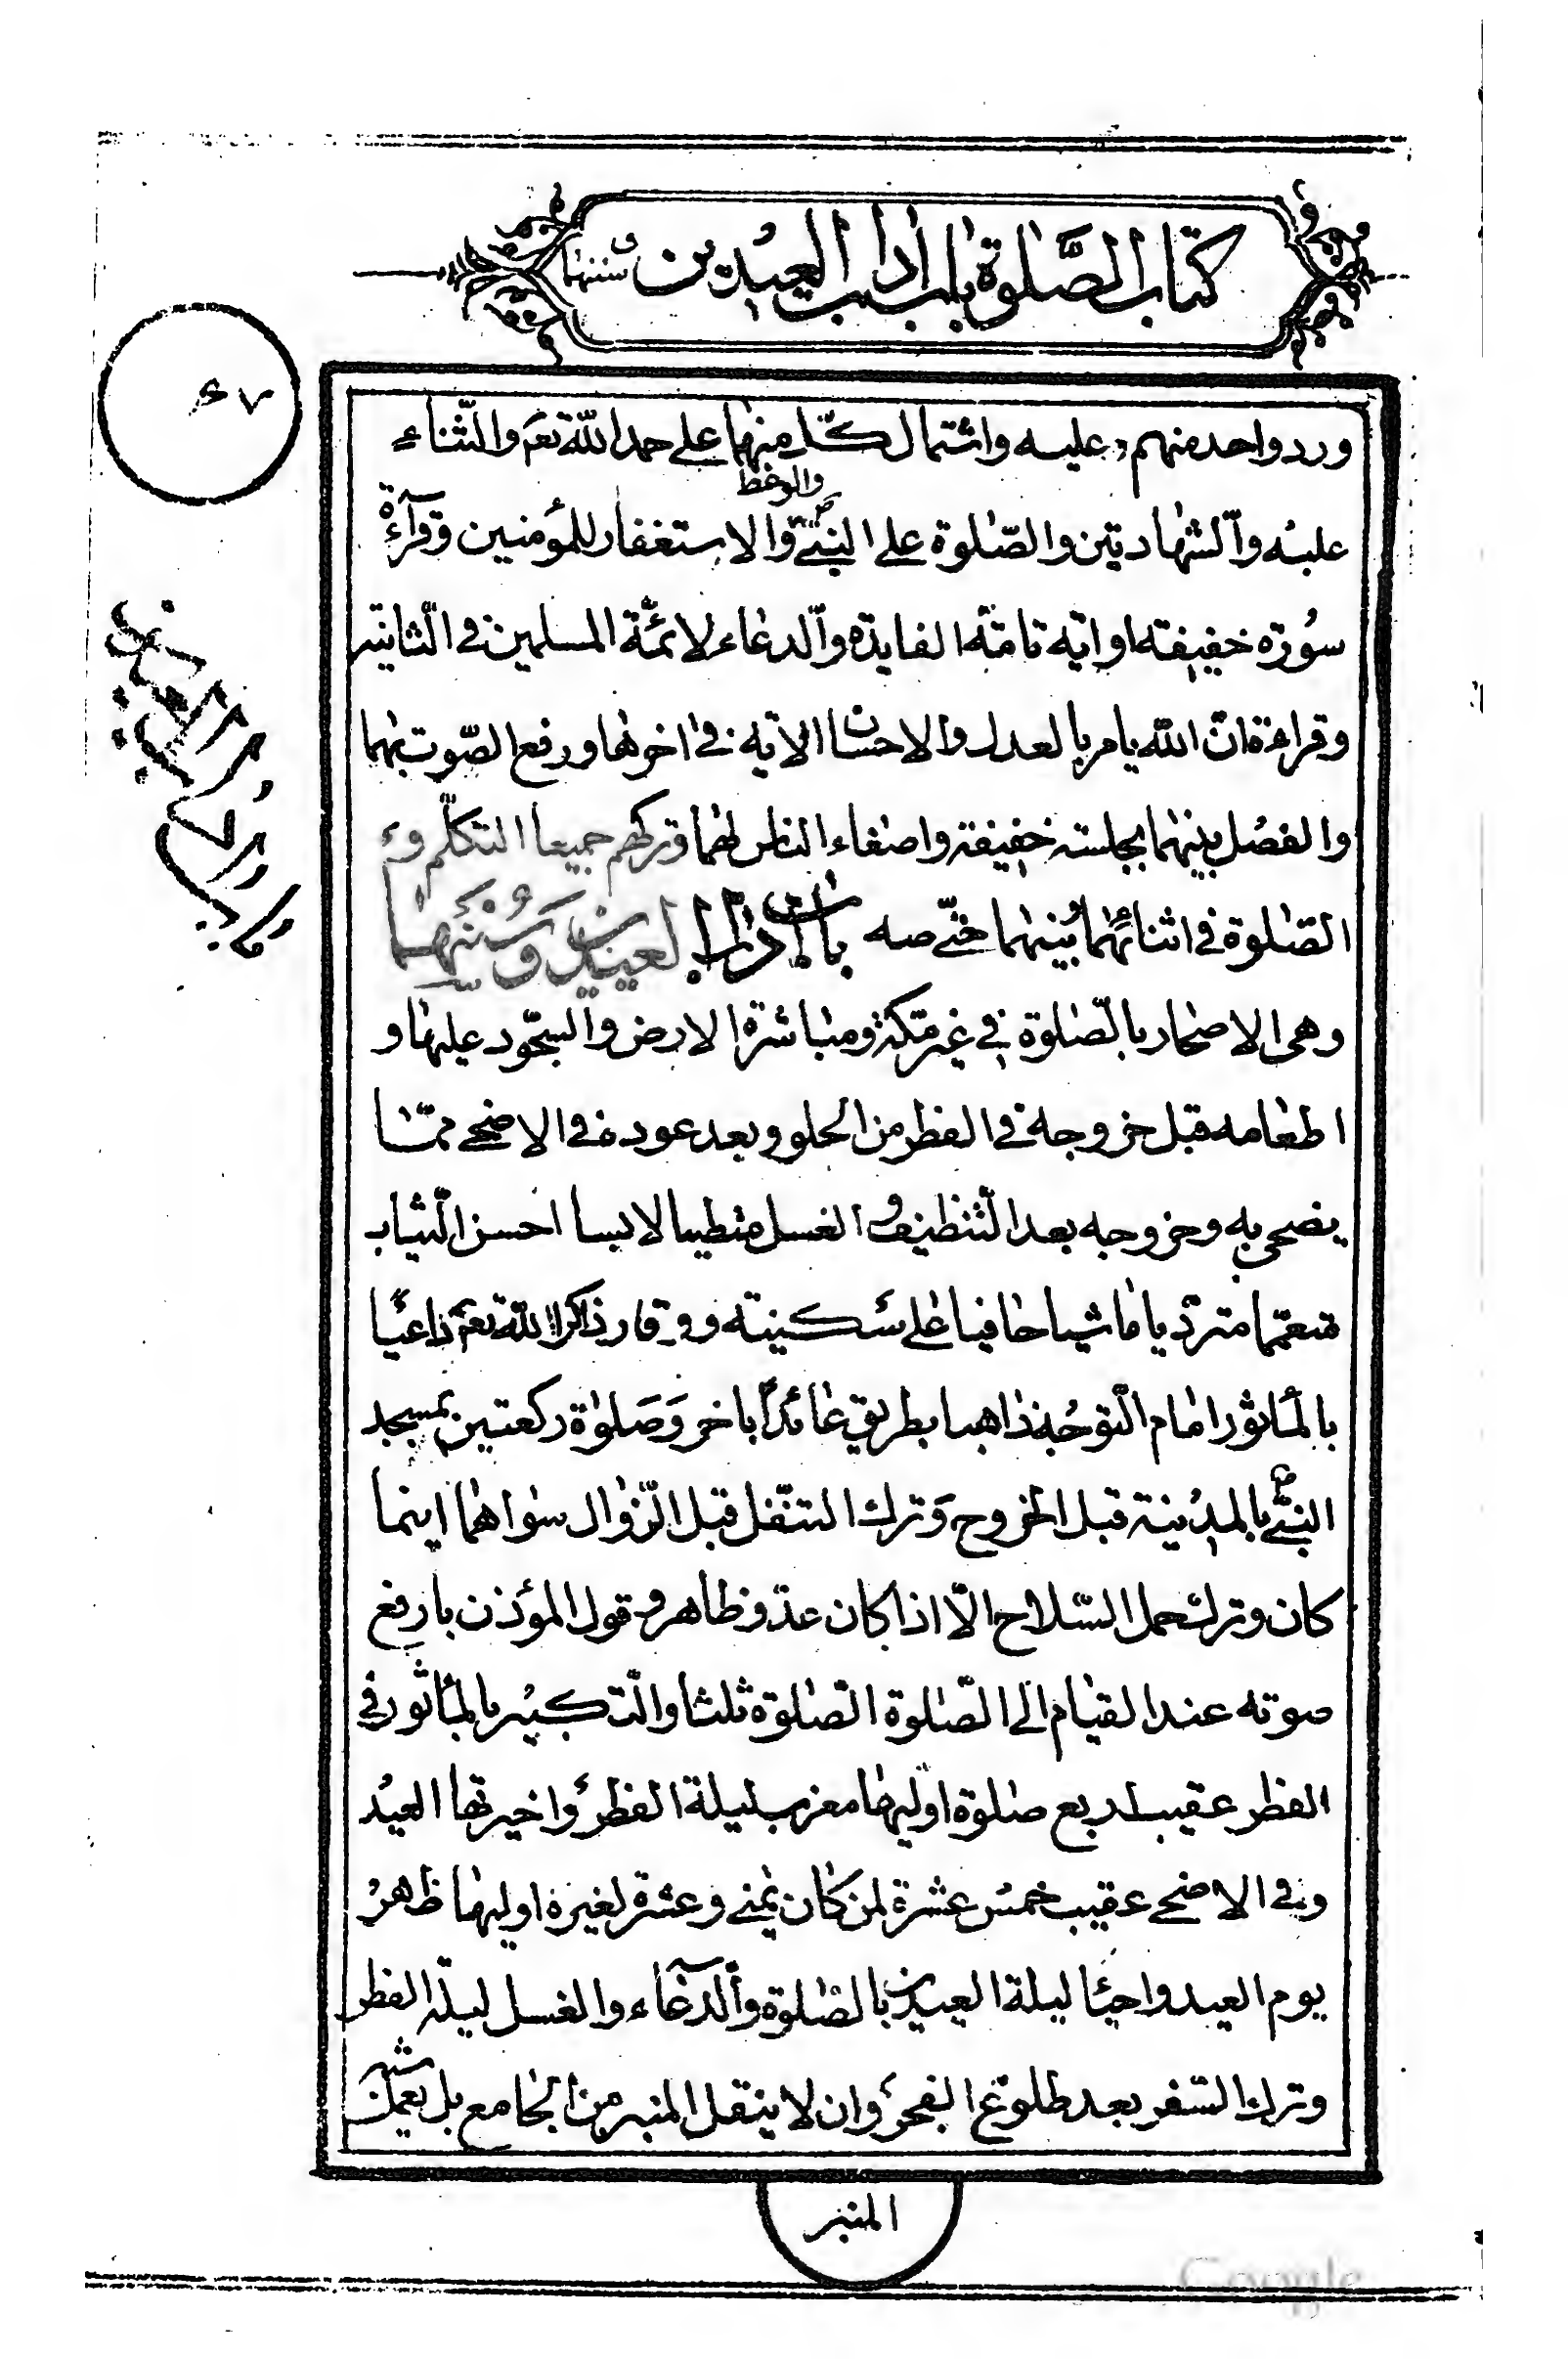 كتاب الصّلوة باب اداب العيدين وسننهما
۶۷
ورد واحد منهم عليه واشتمال كل منهما على حمد اللّه تعم والثّناء
والوعظ
عليه والشّهادتين والصّلوة على النبيّ ص والاستغفار للمؤمنين وقرآءة
سورة خفيفة او اية تامّة الفايدة والدعاء لائمّة المسلمين في الثانية
وقراءة انّ اللّه يامر بالعدل والاحسان الاية في اخرها ورفع الصّوت بهما
والفصل بينهما بجلسة خفيفة واصغاء الناس لهما وتركهم جميعا التكلّم و
الصّلوة في اثنائهما بينهما باب اداب العيدين وسننهما
وهى الاصحار بالصّلوة في غير مكة ومباشرة الارض والسّجود عليها و
اطعامه قبل خروجه في الفطر من الحلو وبعد عوده في الاضحى ممّا
يضحى به وخروجه بعد التنظيف والغسل متطيبا لابسا احسن الثياب
متعمّما متردّيا ماشيا حافيا على سكينة ووقار ذاكرا للّه تعم داعيا
بالمأثور امام التوجّه ذاهبا بطريق عائدا باخر وصلوة ركعتين بمسجد
النبيّ ص بالمدينة قبل الخروج وترك التنفّل قبل الزّوال سواهما اينما
كان وترك حمل السّلاح الّا اذا كان عدو ظاهر وقول المؤذن بارفع
صوته عند القيام الى الصّلوة الصّلوة ثلثا والتكبير بالمأثور في
الفطر عقيب اربع صلوة اوليها مغرب ليلة الفطر واخيرتها العيد
وفي الاضحى عقيب خمس عشرة لمن كان بمنى وعشرة لغيره اوليها ظهر
يوم العيد واحيا ليلة العيدين بالصّلوة والدّعاء والغسل ليلة الفطر
وترك السّفر بعد طلوع الفجر وان لا ينقل المنبر من الجامع بل يعمل شبه
المنبر
Google